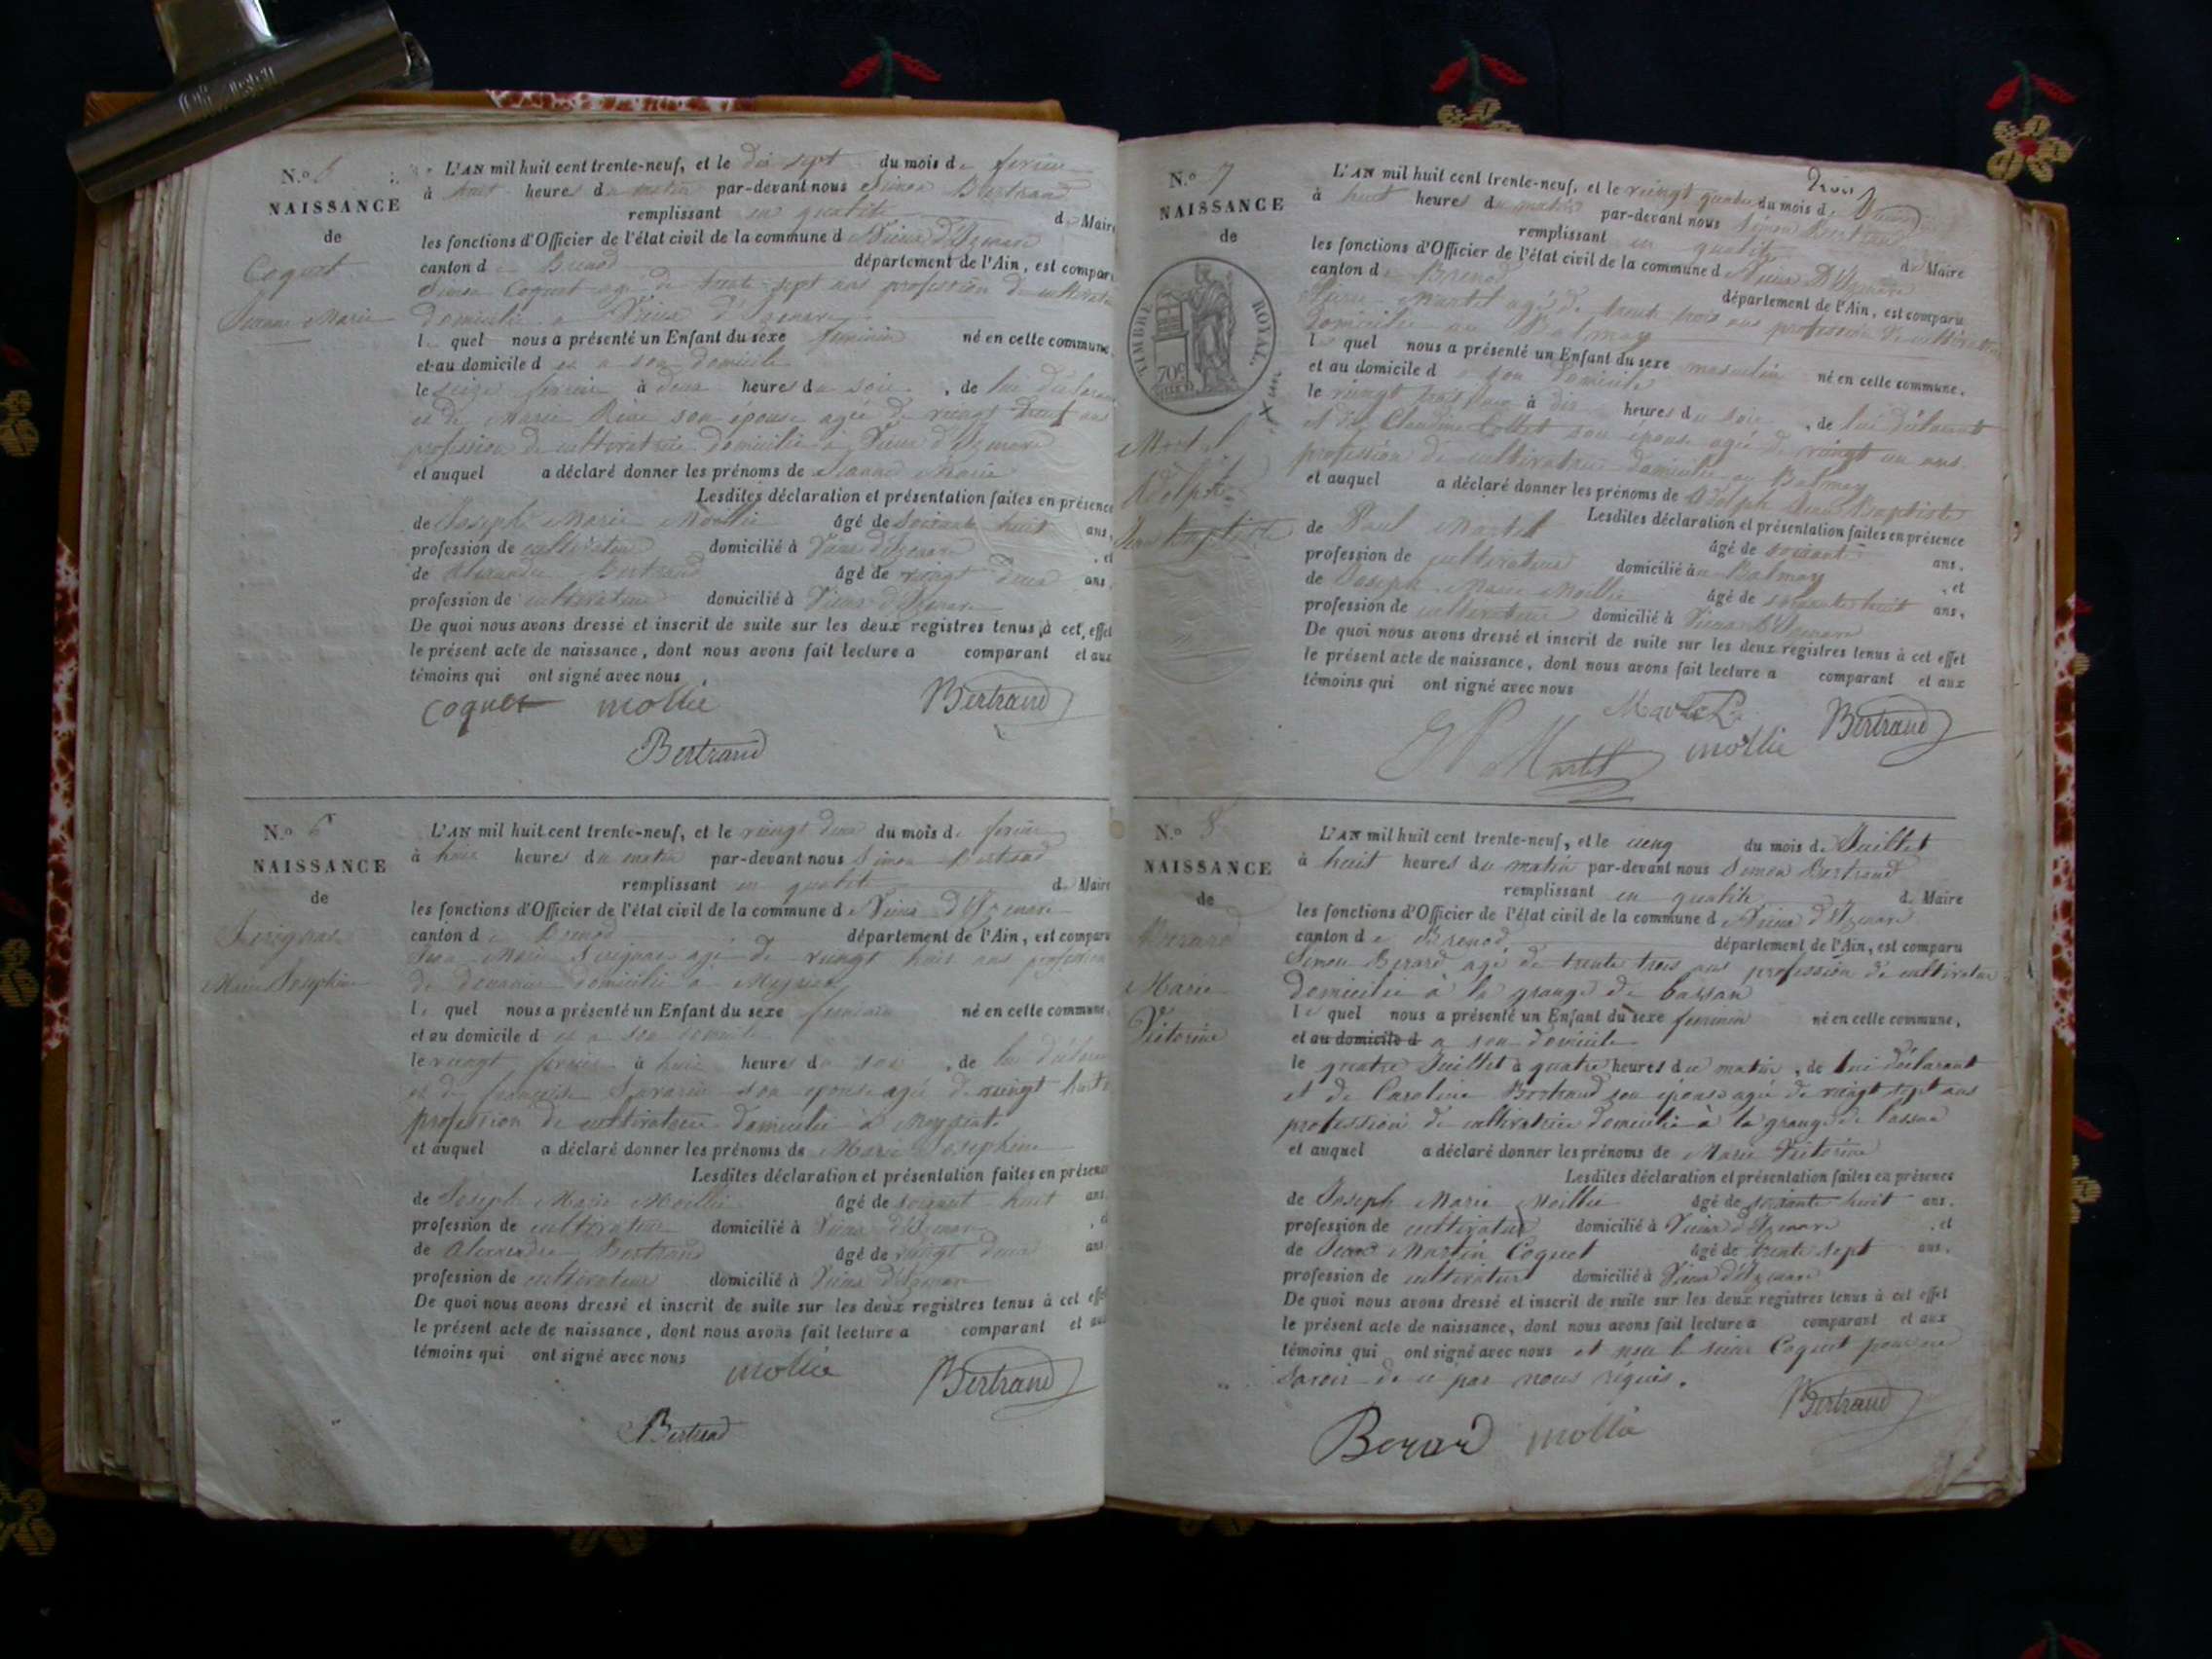 N.º 5
NAISSANCE
de
Coquet
Jeanne Marie
L'AN mil huit cent trente-neuf, et le dix sept du mois de fevrier
à huit heures du matin par-devant nous Simon Bertrand
remplissant en qualité de Maire
les fonctions d'Officier de l'état civil de la commune de Vieux d'Izenave
canton de Brenod département de l'Ain, est comparu
Simon Coquet agé de trente sept ans profession de cultivateur
domicilié a Vieux d'Izenave
lequel nous a présenté un Enfant du sexe feminin né en cette commune,
et au domicile d a son domicile
le seize fevrier à deux heures du soir, de lui déclarant
et de Marie son épouse agée de vingt ans
profession de cultivatrice domicilié a Vieux d'Izenave
et auquel a déclaré donner les prénoms de Jeanne Marie
Lesdites déclaration et présentation faites en présence
de Joseph Marie Moillie âgé de soixante huit ans,
profession de cultivateur domicilié à Vieux d'Izenave, et
de Alexandre Bertrand âgé de vingt deux ans,
profession de cultivateur domicilié à Vieux d'Izenave
De quoi nous avons dressé et inscrit de suite sur les deux registres tenus à cet effet
le présent acte de naissance, dont nous avons fait lecture a comparant et aux
témoins qui ont signé avec nous
Coquet mollie Bertrand
Bertrand
N.º 6
NAISSANCE
de
Marie Josephine
L'AN mil huit cent trente-neuf, et le vingt deux du mois de fevrier
à huit heures du matin par-devant nous Simon Bertrand
remplissant en qualité de Maire
les fonctions d'Officier de l'état civil de la commune de Vieux d'Izenave
canton de Brenod département de l'Ain, est comparu
Jean Marie agé de vingt huit ans profession
de douanier domicilié a Meyriat
lequel nous a présenté un Enfant du sexe feminin né en cette commune,
et au domicile d a son domicile
le vingt fevrier à huit heures du soir, de lui déclarant
et de françoise Savarin son epouse agée de vingt huit
profession de cultivatrice domicilié à Meyriat
et auquel a déclaré donner les prénoms de Marie Josephine
Lesdites déclaration et présentation faites en présence
de Joseph Marie Moillie âgé de soixante huit ans,
profession de cultivateur domicilié à Vieux d'Izenave, et
de Alexandre Bertrand âgé de vingt deux ans,
profession de cultivateur domicilié à Vieux d'Izenave
De quoi nous avons dressé et inscrit de suite sur les deux registres tenus à cet effet
le présent acte de naissance, dont nous avons fait lecture a comparant et aux
témoins qui ont signé avec nous
mollie Bertrand
Bertrand
Trois
N.º 7
NAISSANCE
de
TIMBRE ROYAL.
70c
Martel
Adolphe
Jean Baptiste
L'AN mil huit cent trente-neuf, et le vingt quatre du mois de
à huit heures du matin par-devant nous Simon Bertrand
remplissant en qualité de Maire
les fonctions d'Officier de l'état civil de la commune de Vieux D'Izenave
canton de Brenod département de l'Ain, est comparu
Martel agé de trente trois ans profession de cultivateur
domicilié au Balmay
lequel nous a présenté un Enfant du sexe masculin né en cette commune,
et au domicile d a son domicile
le vingt trois à dix heures du soir, de lui déclarant
et de Claudine Collet son épouse agée de vingt un ans
profession de cultivatrice domicilié au Balmay
et auquel a déclaré donner les prénoms de Adolph Jean Baptiste
Lesdites déclaration et présentation faites en présence
de Paul Martel âgé de soixante ans,
profession de cultivateur domicilié au Balmay, et
de Joseph Marie Moillie âgé de soixante huit ans,
profession de cultivateur domicilié à Vieux d'Izenave
De quoi nous avons dressé et inscrit de suite sur les deux registres tenus à cet effet
le présent acte de naissance, dont nous avons fait lecture a comparant et aux
témoins qui ont signé avec nous
Martel Bertrand
Martel mollie
N.º 8
NAISSANCE
de
Berard
Marie
Victorine
L'AN mil huit cent trente-neuf, et le cinq du mois de Juillet
à huit heures du matin par-devant nous Simon Bertrand
remplissant en qualité de Maire
les fonctions d'Officier de l'état civil de la commune de Vieux d'Izenave
canton de Brenod département de l'Ain, est comparu
Simon Berard agé de trente trois ans profession de cultivateur
domicilié à la grange de bassan
lequel nous a présenté un Enfant du sexe feminin né en cette commune,
et au domicile d a son domicile
le quatre Juillet à quatre heures du matin, de lui déclarant
et de Caroline Bertrand son épouse agée de vingt sept ans
profession de cultivatrice domicilié à la grange de bassan
et auquel a déclaré donner les prénoms de Marie Victorine
Lesdites déclaration et présentation faites en présence
de Joseph Marie Moillie âgé de soixante huit ans,
profession de cultivateur domicilié à Vieux d'Izenave, et
de Jean Martin Coquet âgé de trente sept ans,
profession de cultivateur domicilié à Vieux d'Izenave
De quoi nous avons dressé et inscrit de suite sur les deux registres tenus à cet effet
le présent acte de naissance, dont nous avons fait lecture a comparant et aux
témoins qui ont signé avec nous et non le sieur Coquet pour ne
Savoir de ce par nous requis.
Bertrand
Berard mollie